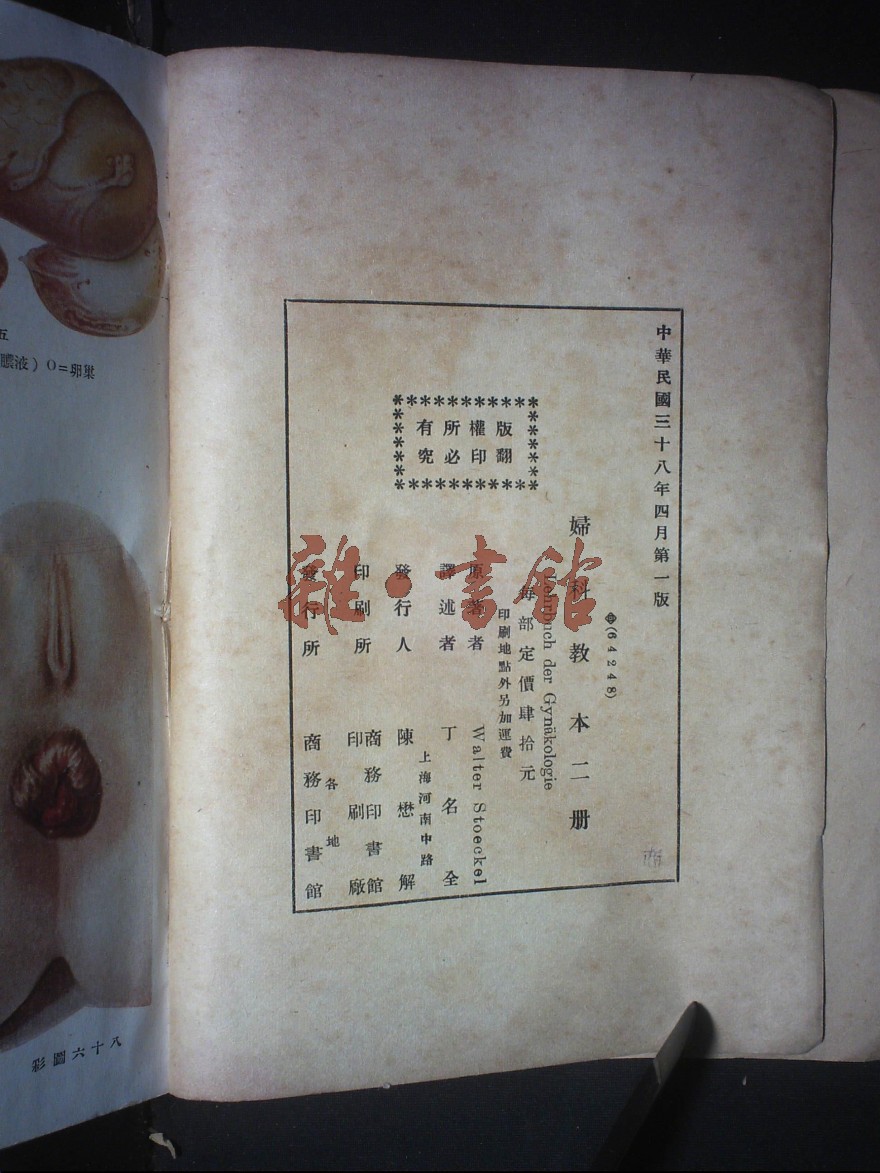 中華民國三十八年四月第一版
(64248)
婦科教本二册
Lehrbuch der Gynäkologie
每部定價肆拾元
印刷地點外另加運費
版權所有
翻印必究
原著者 Walter Stoeckel
譯述者 丁名全
上海河南中路
發行人 陳懋解
印刷所 商務印書館
印刷廠
各地
發行所 商務印書館
雜·書館
五
膿液) O=卵巢
彩圖六十八